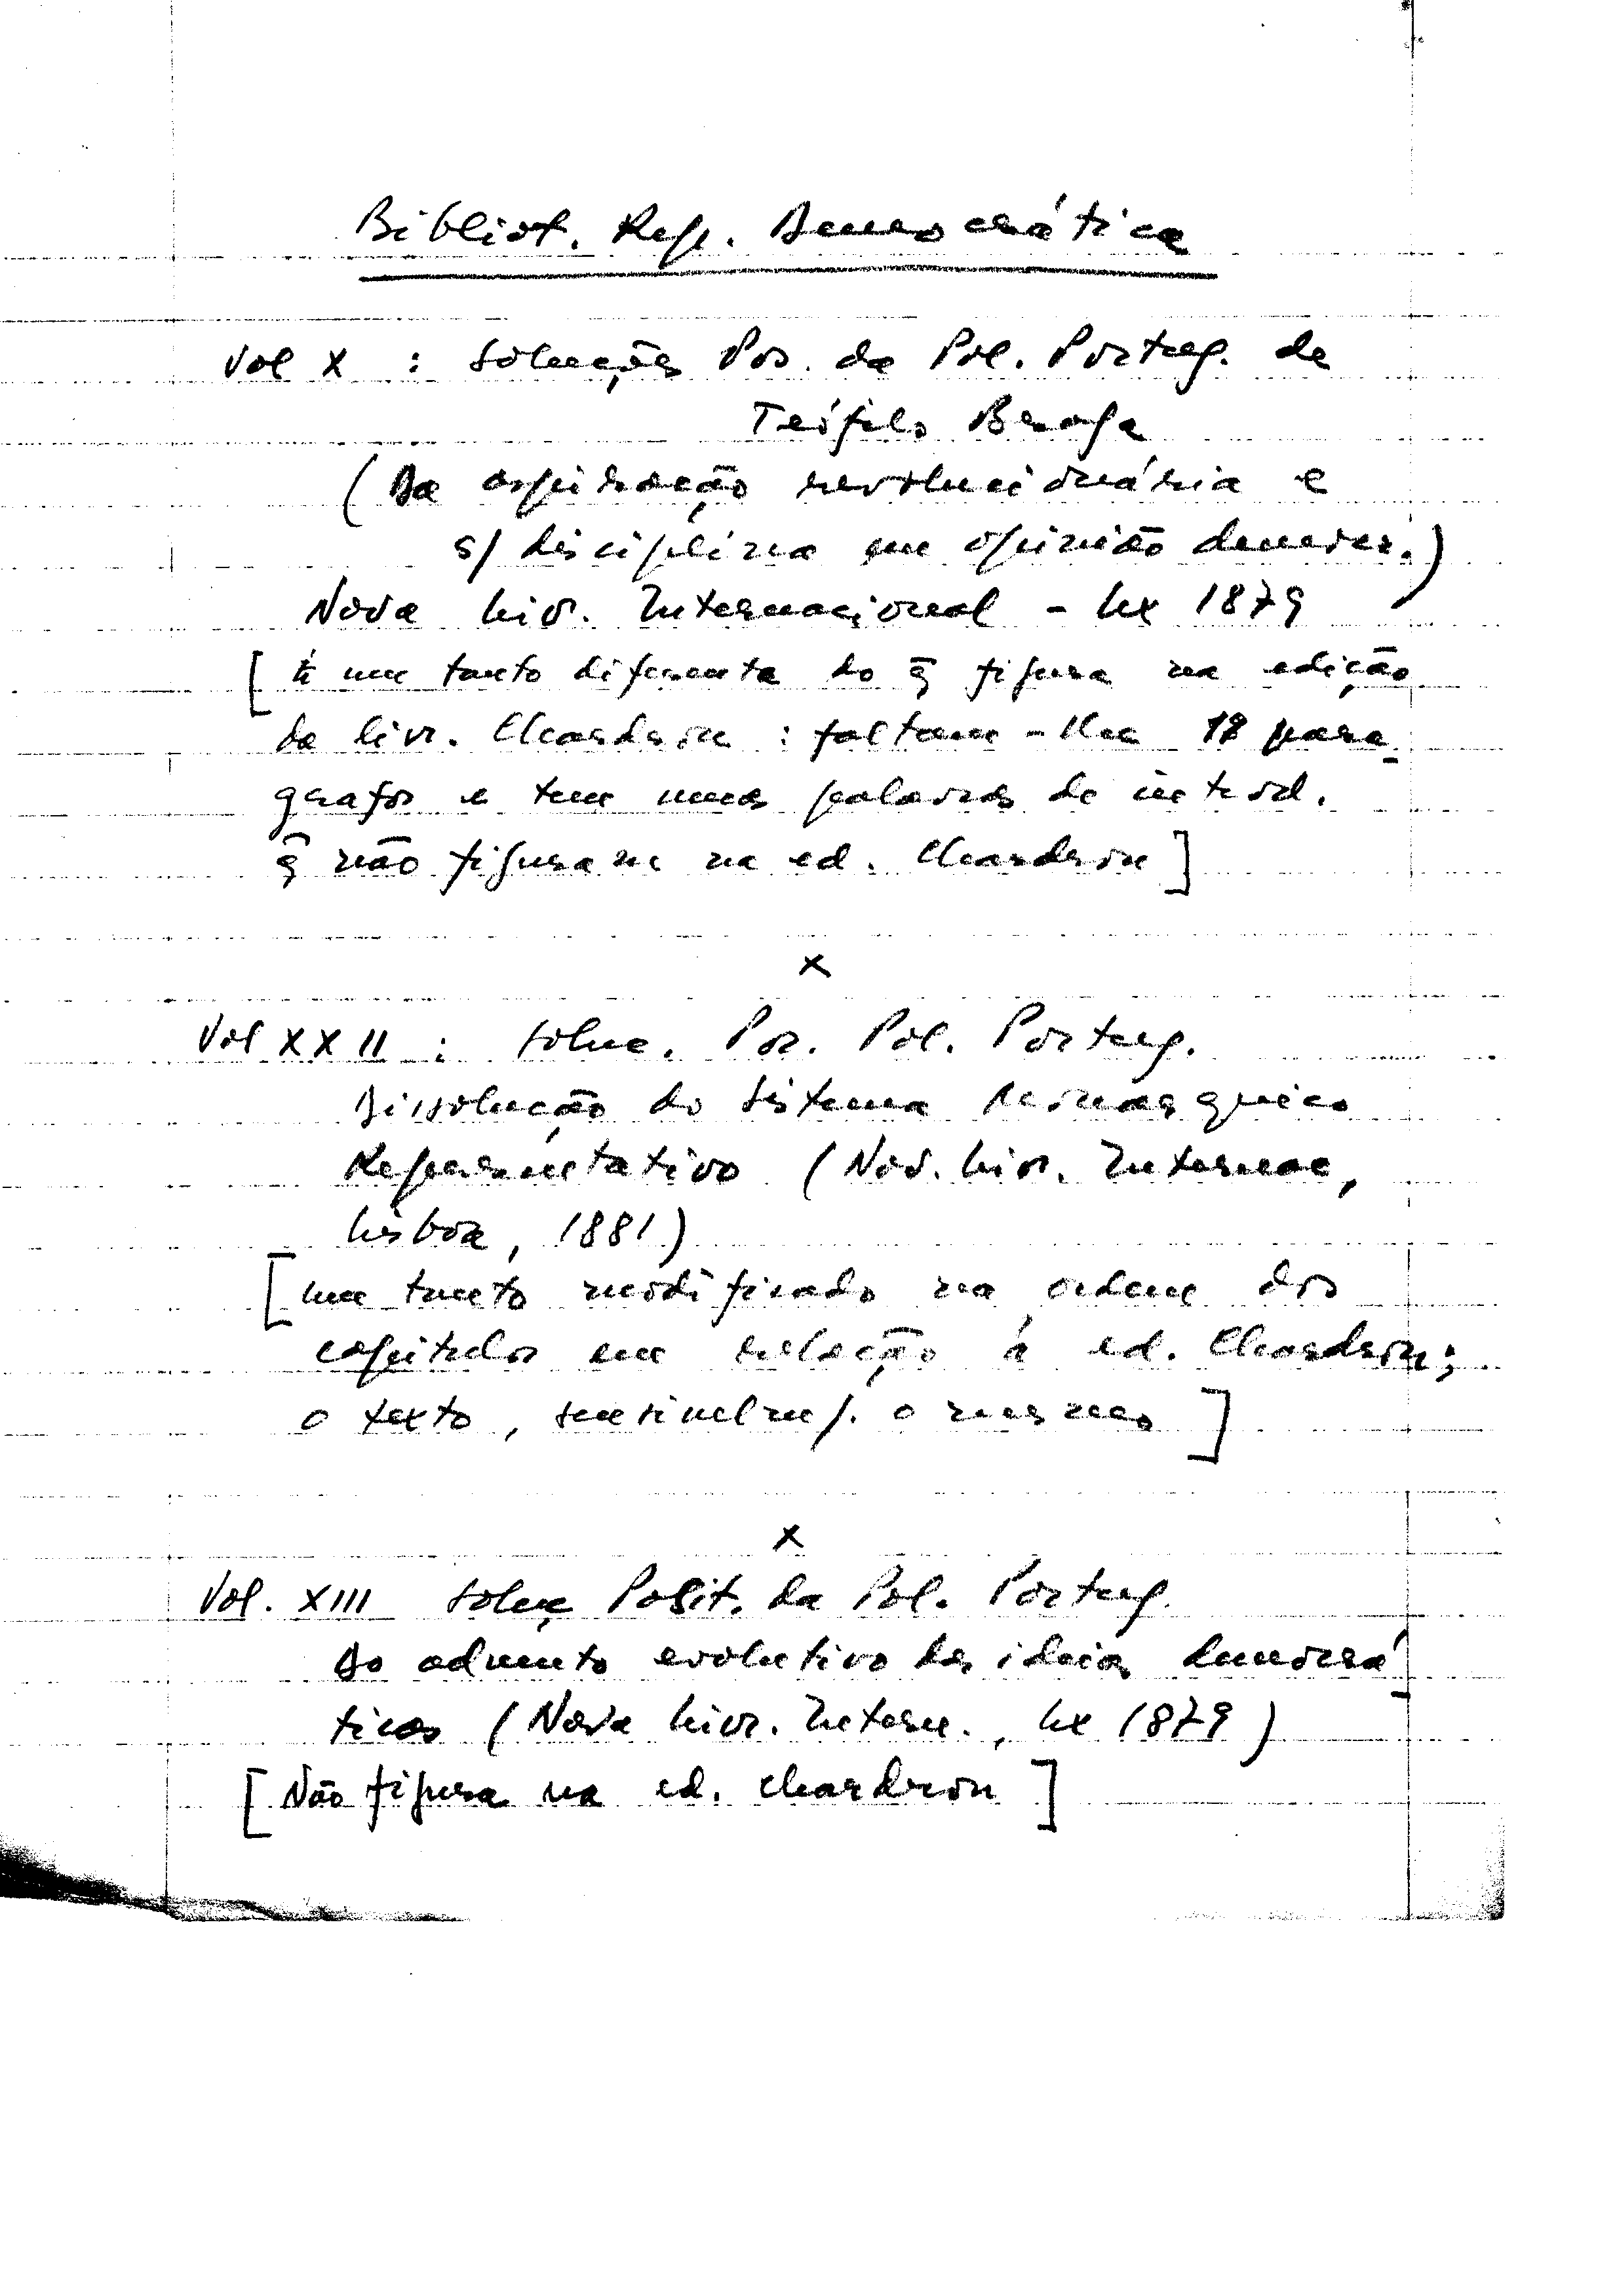 Bibliot. Rep. Democrática
Vol X : Soluções Pos. da Pol. Portug. de
Teófilo Braga
(Da aspiração revolucionária e
s/ disciplina em opinião democr.)
Nova Liv. Internacional - Lx 1879
[É um tanto diferente do q̃ figura na edição
da Livr. Chardron : faltam-lhe 18 pará-
grafos e tem umas palavras de introd.
q̃ não figuram na ed. Chardron]
x
Vol XXII : Soluc. Pos. Pol. Portug.
Dissolução do Sistema Monárquico
Representativo (Nov. Livr. Internac,
Lisboa, 1881)
[um tanto modificado na ordem dos
capítulos em relação à ed. Chardron;
o texto, sensivelm/. o mesmo]
x
Vol. XIII Soluç Posit. da Pol. Portug.
Do advento evolutivo das ideias democrá-
ticas (Nova Livr. Intern., Lx 1879)
[Não figura na ed. Chardron]